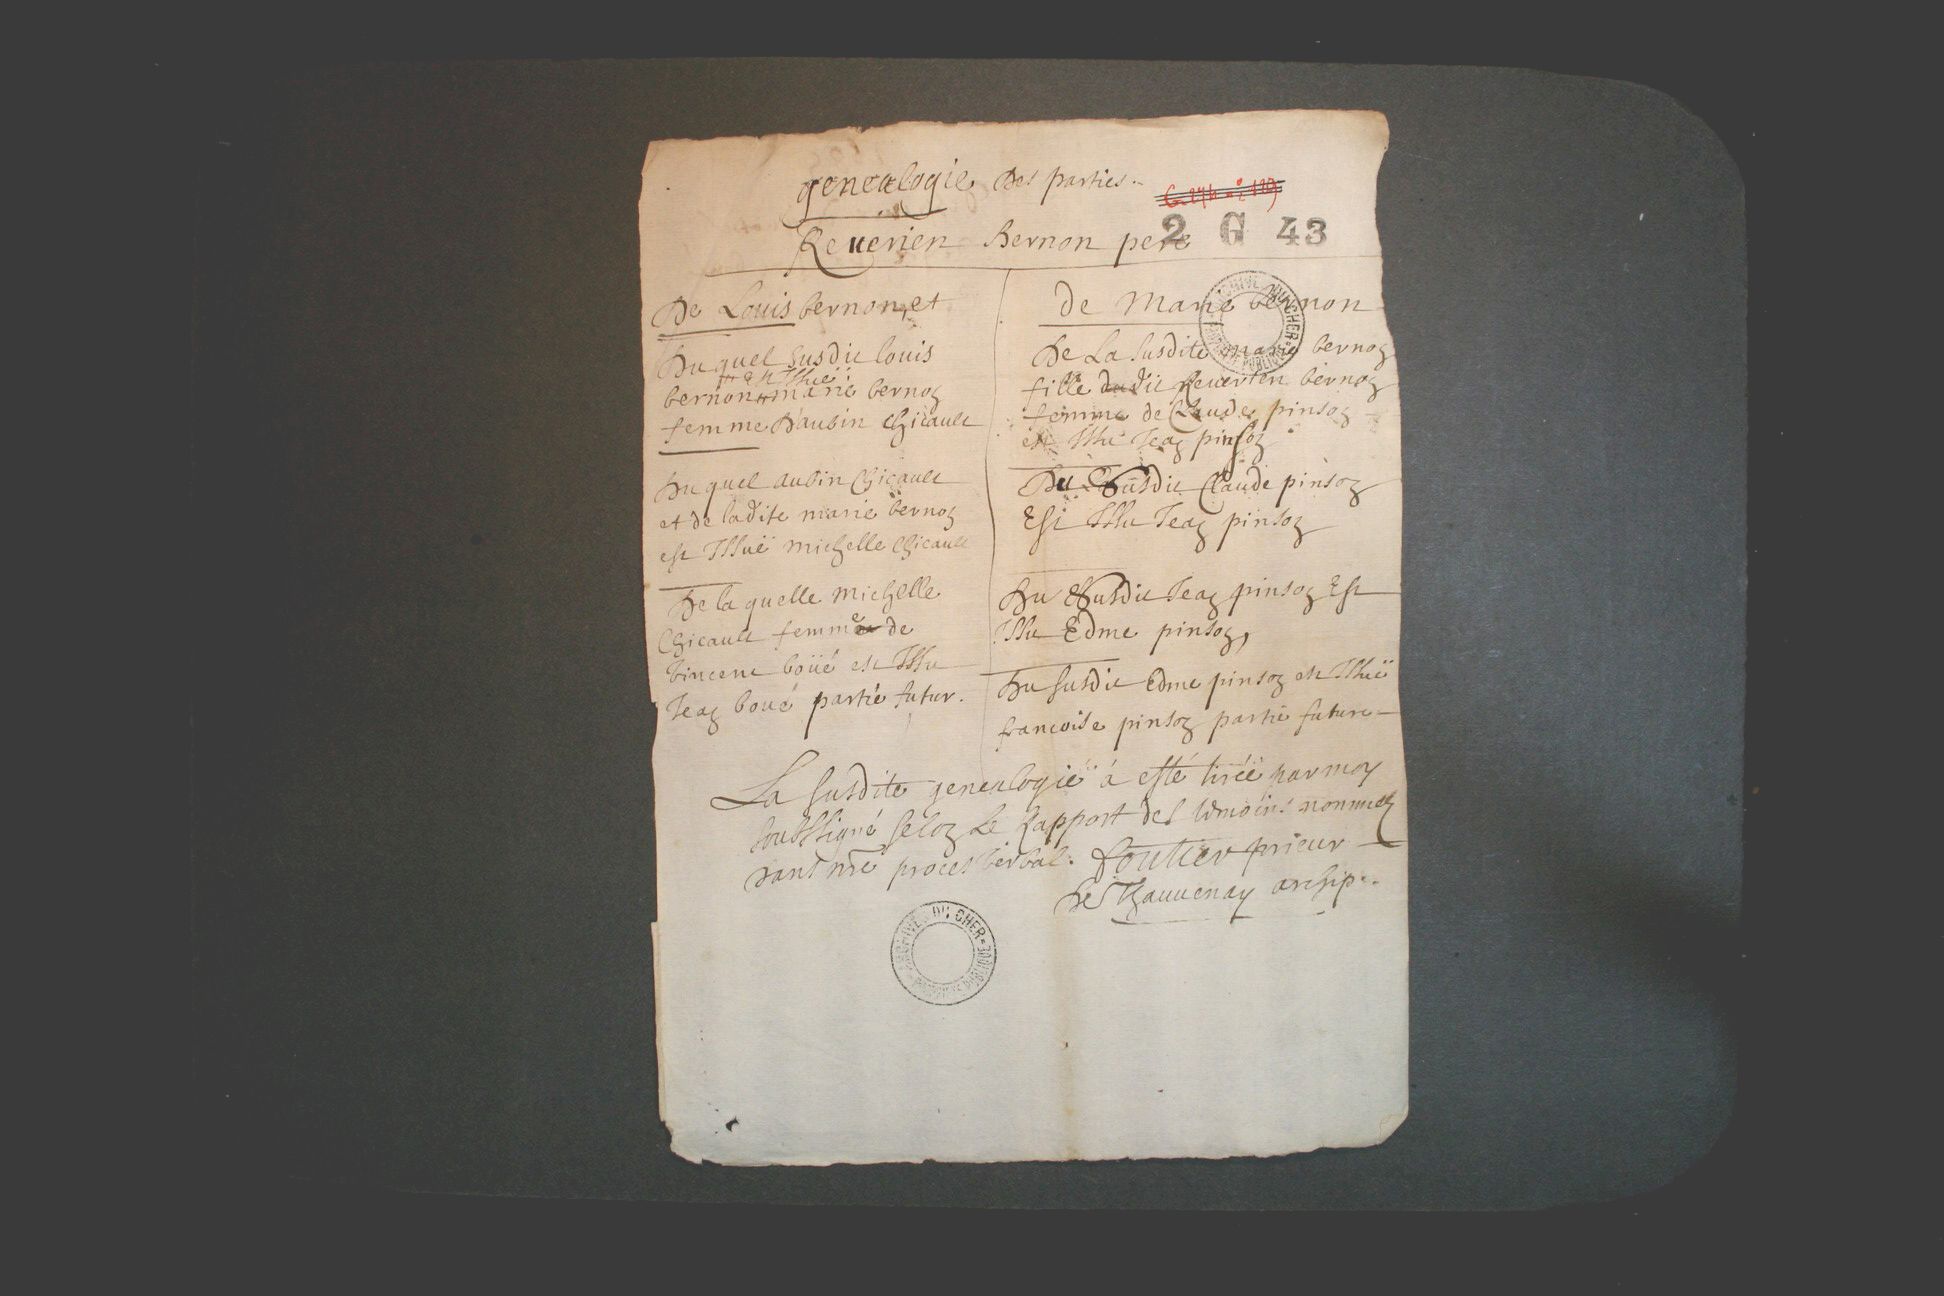 genealogie des parties.
2 G 43
Reverien Bernon pere
De Louis bernon, et
Du quel susdit louis
est Issue
bernon marie bernon
femme D'aubin Chicault
Du quel aubin Chicault
et de ladite marie bernon
est Issuë michelle Chicault
De la quelle michelle
Chicault femme de
vincent boüé est Issu
Jean boué partie futur.
de Marie bernon
De La susdite marie bernon
fille dudit Reverien bernon
femme de Claude pinson
est Issu Jean pinson
Du susdit Claude pinson
Est Issu Jean pinson
Du susdit Jean pinson Est
Issu Edme pinson,
Du susdit Edme pinson est Issuë
francoise pinson partie future
La susdite genealogie à esté tirée par moy
soubssigné selon Le Rapport des temoins nommez
dans nre proces verbal. prieur
de archip.
ARCHIVES DU CHER
ARCHIVES DU CHER